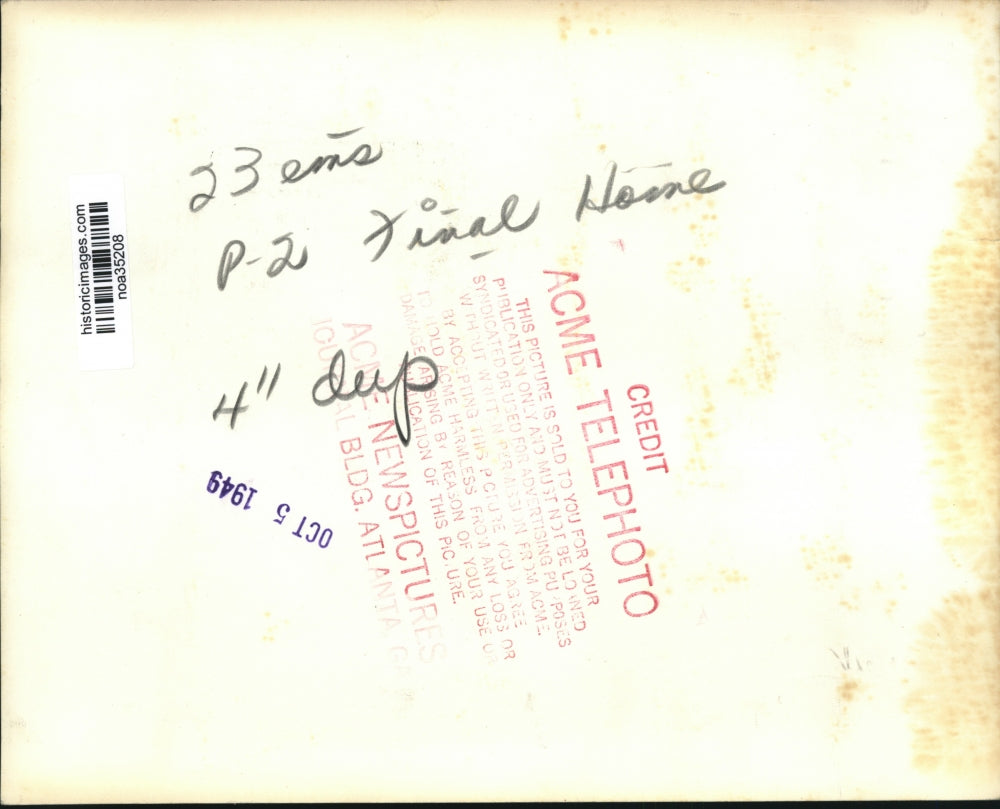 23 ems
P-2 Final Home
4" deep
historicimages.com
noa35208
OCT 5 1949
CREDIT
ACME TELEPHOTO
THIS PICTURE IS SOLD TO YOU FOR YOUR
PUBLICATION ONLY AND MUST NOT BE LOANED
SYNDICATED OR USED FOR ADVERTISING PURPOSES
WITHOUT WRITTEN PERMISSION FROM ACME.
BY ACCEPTING THIS PICTURE YOU AGREE
TO HOLD ACME HARMLESS FROM ANY LOSS OR
DAMAGE ARISING BY REASON OF YOUR USE OR
PUBLICATION OF THIS PICTURE.
ACME NEWSPICTURES
BLDG. ATLANTA, GA